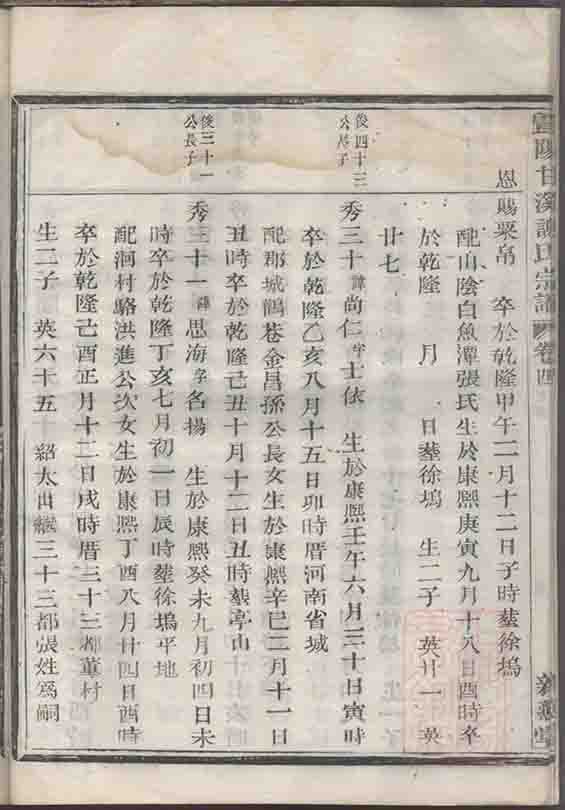 暨陽甘溪謝氏宗譜 卷四
恩賜粟帛 卒於乾隆甲午二月十二日子時塟徐塢
配山陰白魚潭張氏生於康熙庚寅九月十八日酉時卒
於乾隆 月 日塟徐塢 生二子 英廿一 英
廿七
俊四十三
公長子
秀三十諱尚仁字士依 生於康熙壬午六月三十日寅時
卒於乾隆乙亥八月十五日卯時厝河南省城
配郡城鵝巷金昌孫公長女生於康熙辛巳二月十一日
丑時卒於乾隆己丑十月十二日丑時塟亭山
俊三十一
公長子
秀三十一諱思海字名揚 生於康熙癸未九月初四日未
時卒於乾隆丁亥七月初一日辰時塟徐塢平地
配洞村駱洪進公次女生於康熙丁酉八月廿四日酉時
卒於乾隆己酉正月十二日戌時厝三十三都董村
生二子 英六十五 紹太出繼三十三都張姓爲嗣